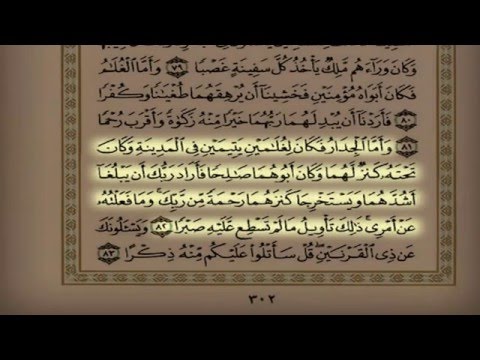 وَكَانَ وَرَآءَهُم مَّلِكٌ يَأْخُذُ كُلَّ سَفِينَةٍ غَصْبًا ٧٩ وَأَمَّا ٱلْغُلَٰمُ
فَكَانَ أَبَوَاهُ مُؤْمِنَيْنِ فَخَشِينَآ أَن يُرْهِقَهُمَا طُغْيَٰنًا وَكُفْرًا
٨٠ فَأَرَدْنَآ أَن يُبْدِلَهُمَا رَبُّهُمَا خَيْرًا مِّنْهُ زَكَوٰةً وَأَقْرَبَ رُحْمًا
٨١ وَأَمَّا ٱلْجِدَارُ فَكَانَ لِغُلَٰمَيْنِ يَتِيمَيْنِ فِى ٱلْمَدِينَةِ وَكَانَ
تَحْتَهُۥ كَنزٌ لَّهُمَا وَكَانَ أَبُوهُمَا صَٰلِحًا فَأَرَادَ رَبُّكَ أَن يَبْلُغَآ
أَشُدَّهُمَا وَيَسْتَخْرِجَا كَنزَهُمَا رَحْمَةً مِّن رَّبِّكَ ۚ وَمَا فَعَلْتُهُۥ
عَنْ أَمْرِى ۚ ذَٰلِكَ تَأْوِيلُ مَا لَمْ تَسْطِع عَّلَيْهِ صَبْرًا ٨٢ وَيَسْـَٔلُونَكَ
عَن ذِى ٱلْقَرْنَيْنِ ۖ قُلْ سَأَتْلُوا۟ عَلَيْكُم مِّنْهُ ذِكْرًا ٨٣
٣٠٢